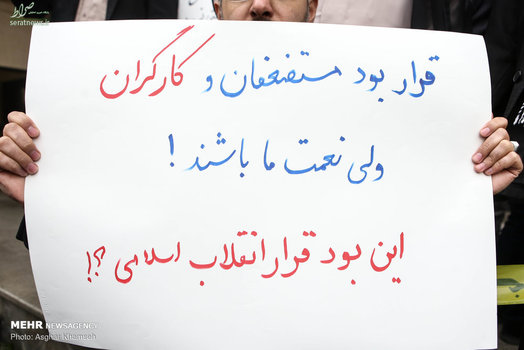 صراط
seratnews.ir
قرار بود مستضعفان و کارگران
ولی نعمت ما باشند!
این بود قرار انقلاب اسلامی؟!
MEHR NEWSAGENCY
Photo: Asghar Khamseh